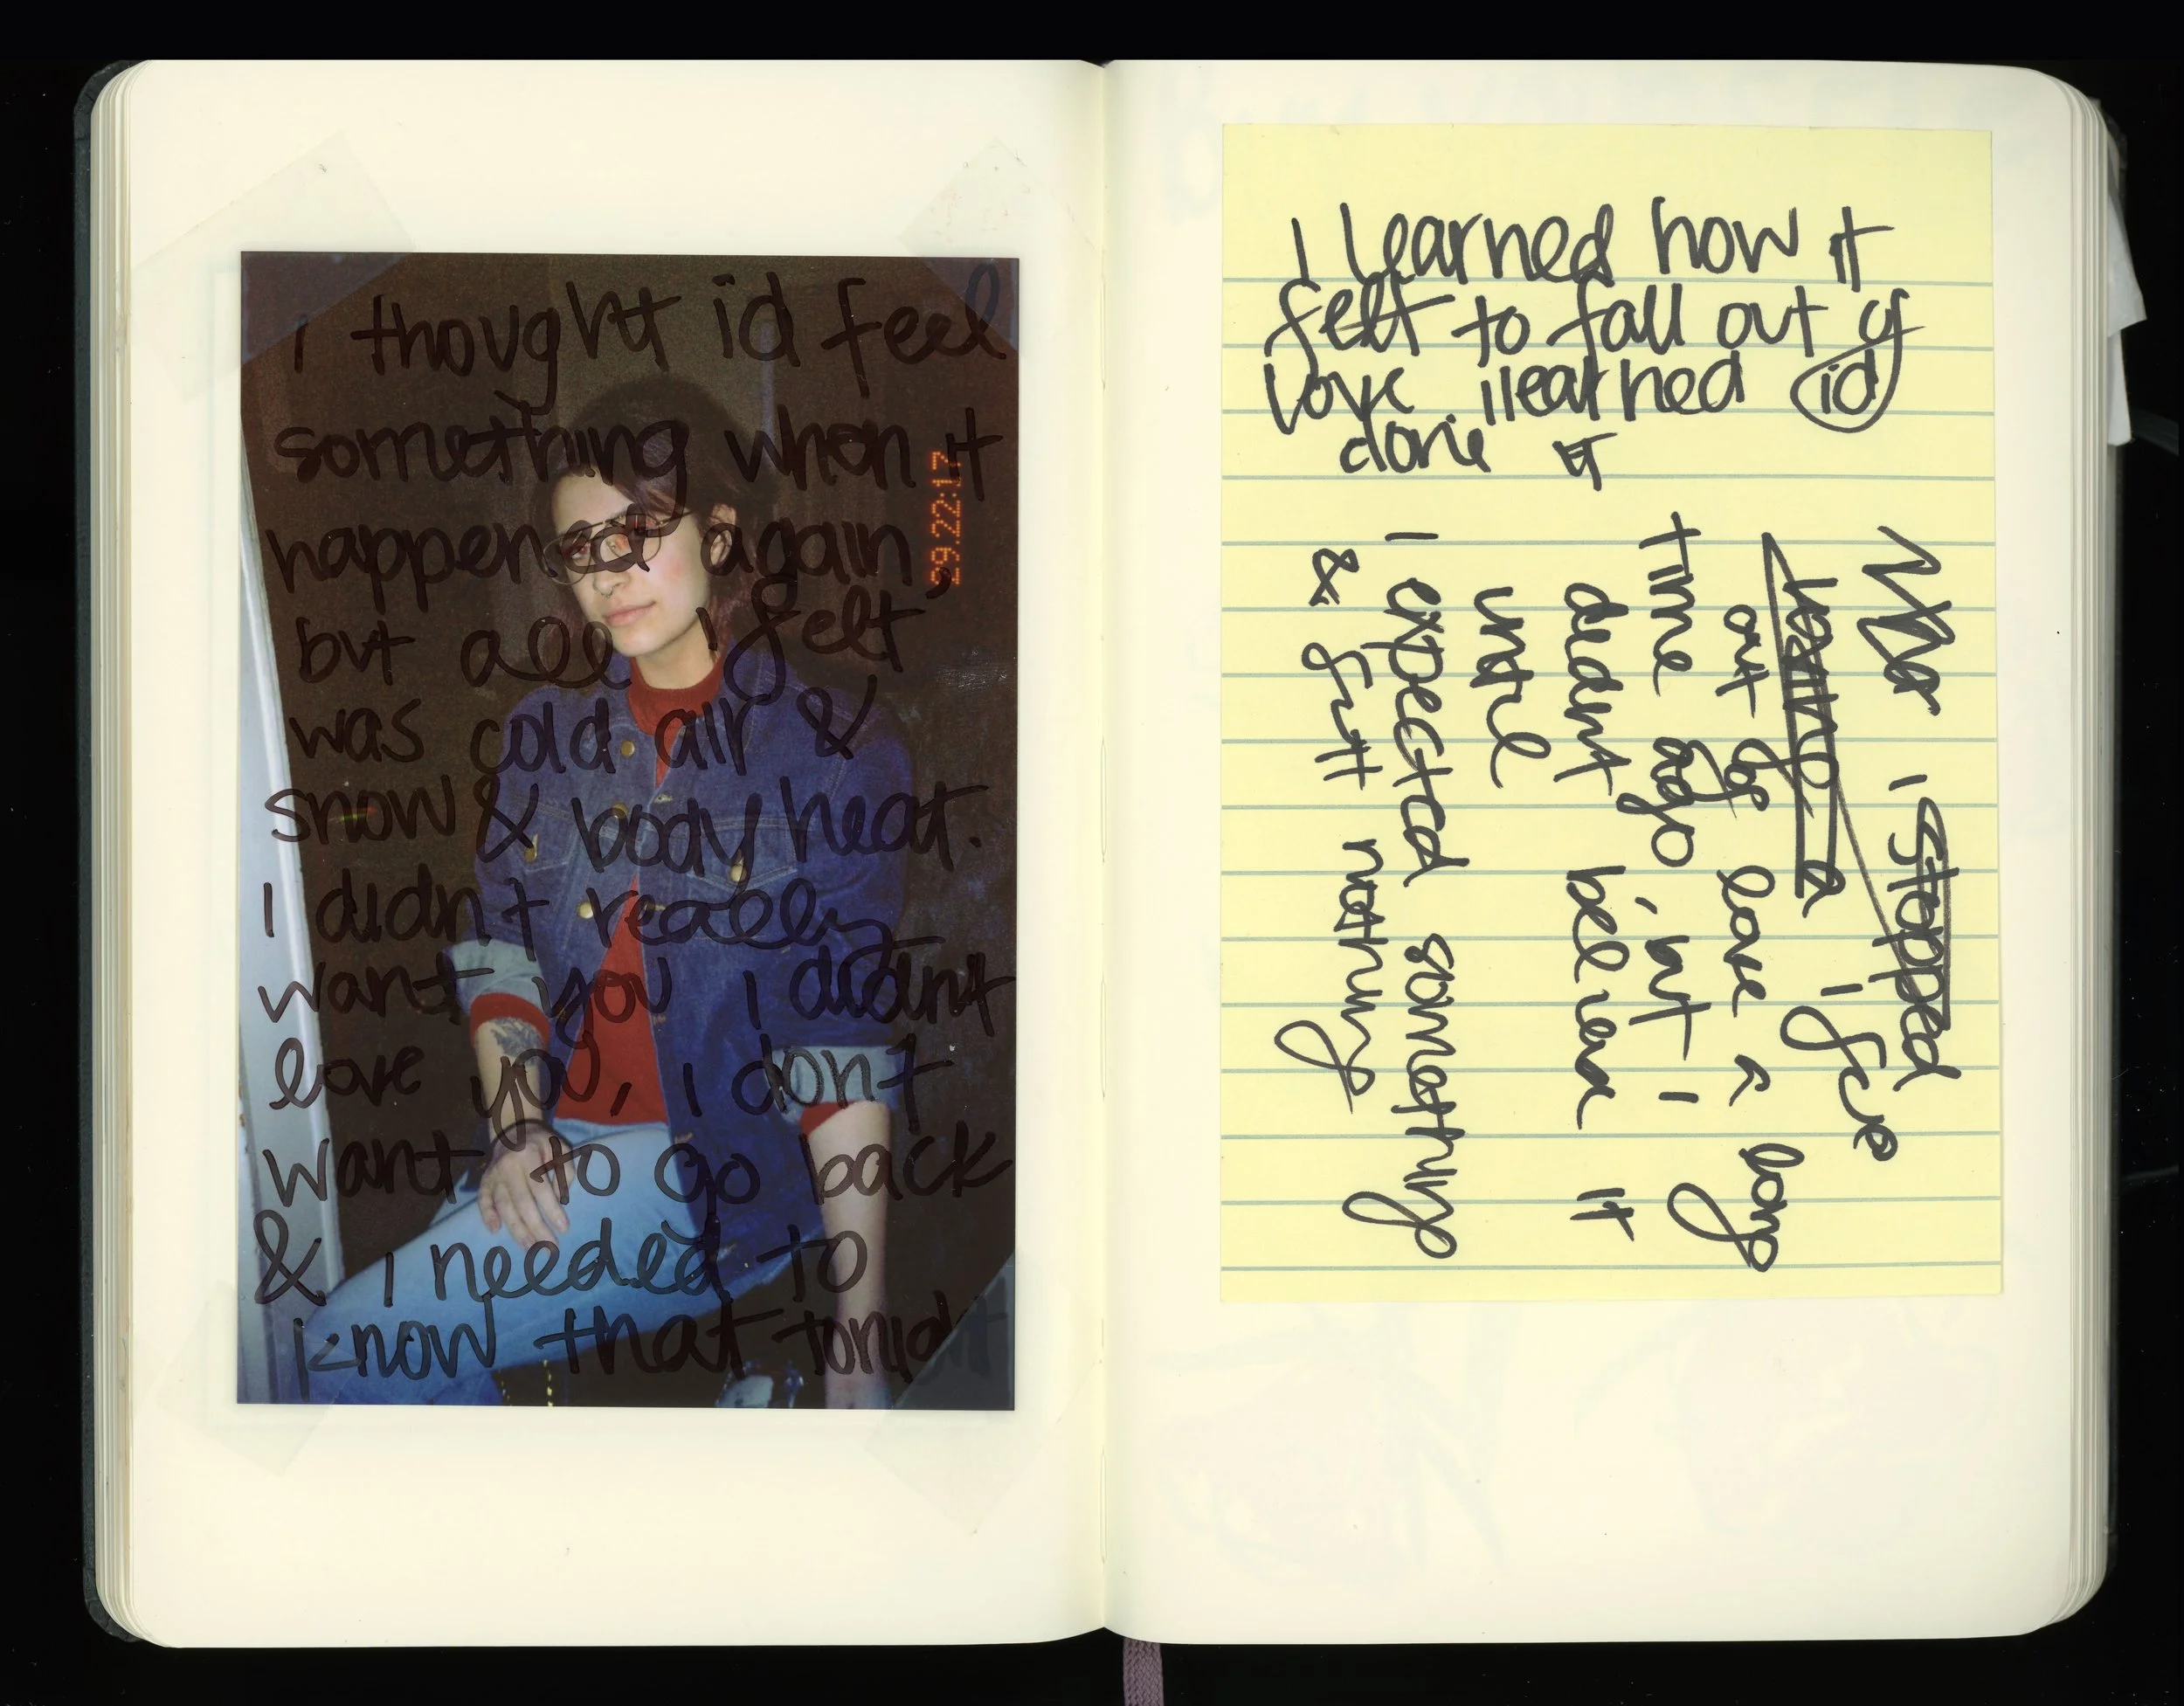 i thought id feel
something when it
happened again,
but all i felt
was cold air &
snow & body heat.
I didn't really
want you i didn't
love you, i don't
want to go back
& i needed to
know that tonight
29.22:17
I learned how it
felt to fall out of
love i learned id
done it
i stopped
i fell
out of love a long
time ago, but i
didn't believe it
until
i expected something
& felt nothing